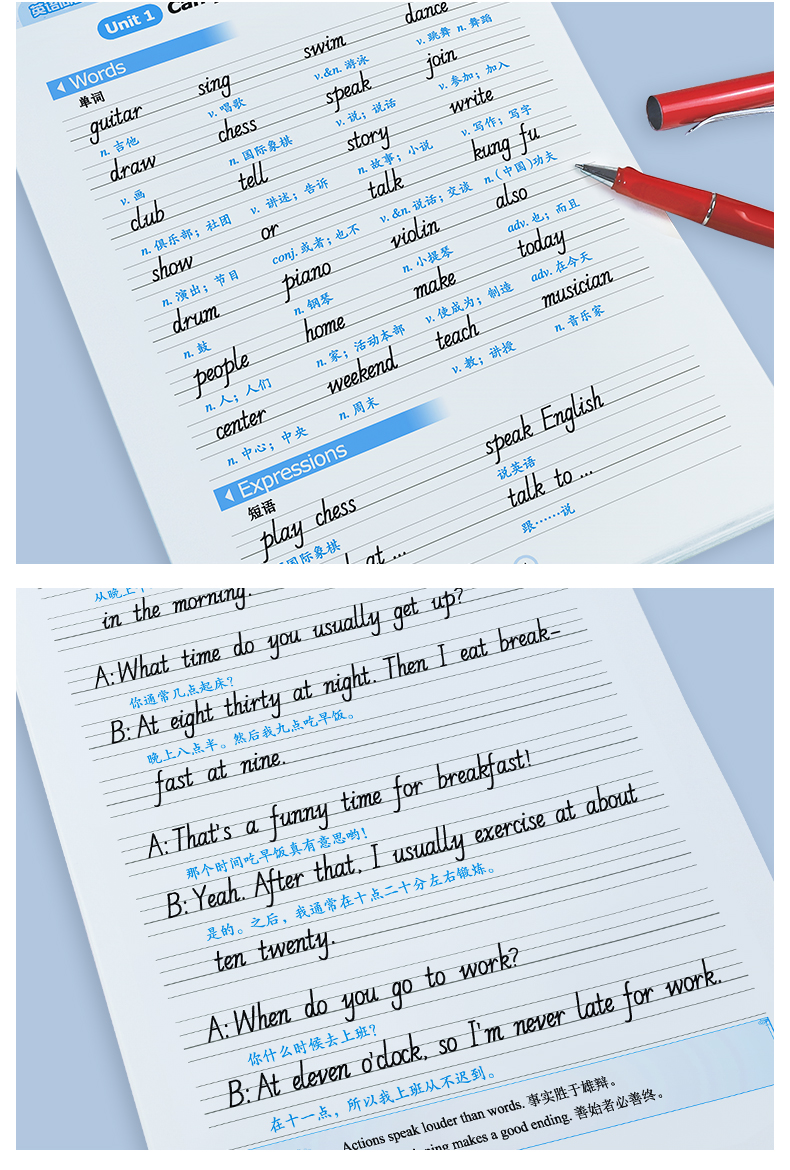 Unit 1 Can
Words
单词
guitar sing swim dance
n. 吉他 v. 唱歌 v.&n. 游泳 v. 跳舞 n. 舞蹈
draw chess speak join
v. 画 n. 国际象棋 v. 说；说话 v. 参加；加入
club tell story write
n. 俱乐部；社团 v. 讲述；告诉 n. 故事；小说 v. 写作；写字
show or talk kung fu
n. 演出；节目 conj. 或者；也不 v.&n. 说话；交谈 n.(中国)功夫
drum piano violin also
n. 鼓 n. 钢琴 n. 小提琴 adv. 也；而且
people home make today
n. 人；人们 n. 家；活动本部 v. 使成为；制造 adv. 在今天
center weekend teach musician
n. 中心；中央 n. 周末 v. 教；讲授 n. 音乐家
Expressions
短语
play chess speak English
国际象棋 说英语
talk to ...
跟……说
in the morning.
A: What time do you usually get up?
你通常几点起床？
B: At eight thirty at night. Then I eat break-
晚上八点半。然后我九点吃早饭。
fast at nine.
A: That's a funny time for breakfast!
那个时间吃早饭真有意思哟！
B: Yeah. After that, I usually exercise at about
是的。之后，我通常在十点二十分左右锻炼。
ten twenty.
A: When do you go to work?
你什么时候去上班？
B: At eleven o'clock, so I'm never late for work.
在十一点，所以我上班从不迟到。
Actions speak louder than words. 事实胜于雄辩。
makes a good ending. 善始者必善终。